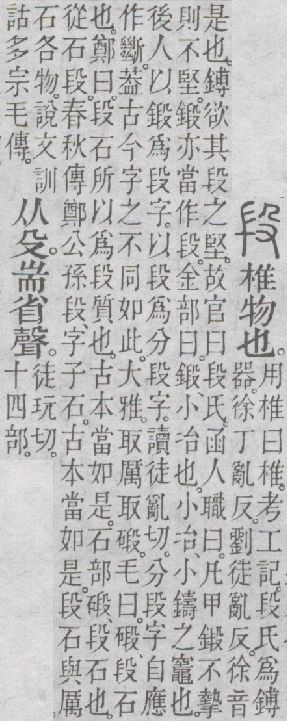 段 椎物也。
用椎曰椎。考工記。段氏爲鎛
器。徐丁亂反。劉徒亂反。徐音
是也。鎛欲其段之堅。故官曰段氏。函人職曰。凡甲鍛不摯
則不堅。鍛亦當作段。金部曰。鍛、小冶也。小冶、小鑄之竈也。
後人以鍛爲段字。以段爲分段字。讀徒亂切。分段字自應
作斷。葢古今字之不同如此。大雅。取厲取碫。毛曰。碫、段石
也。鄭曰。段石所以爲段質也。古本當如是。石部碫、段石也。
從石段。春秋傳鄭公孫段、字子石。古本當如是。段石與厲
石各物。說文訓
詁多宗毛傳。
从殳。耑省聲。
徒玩切。
十四部。